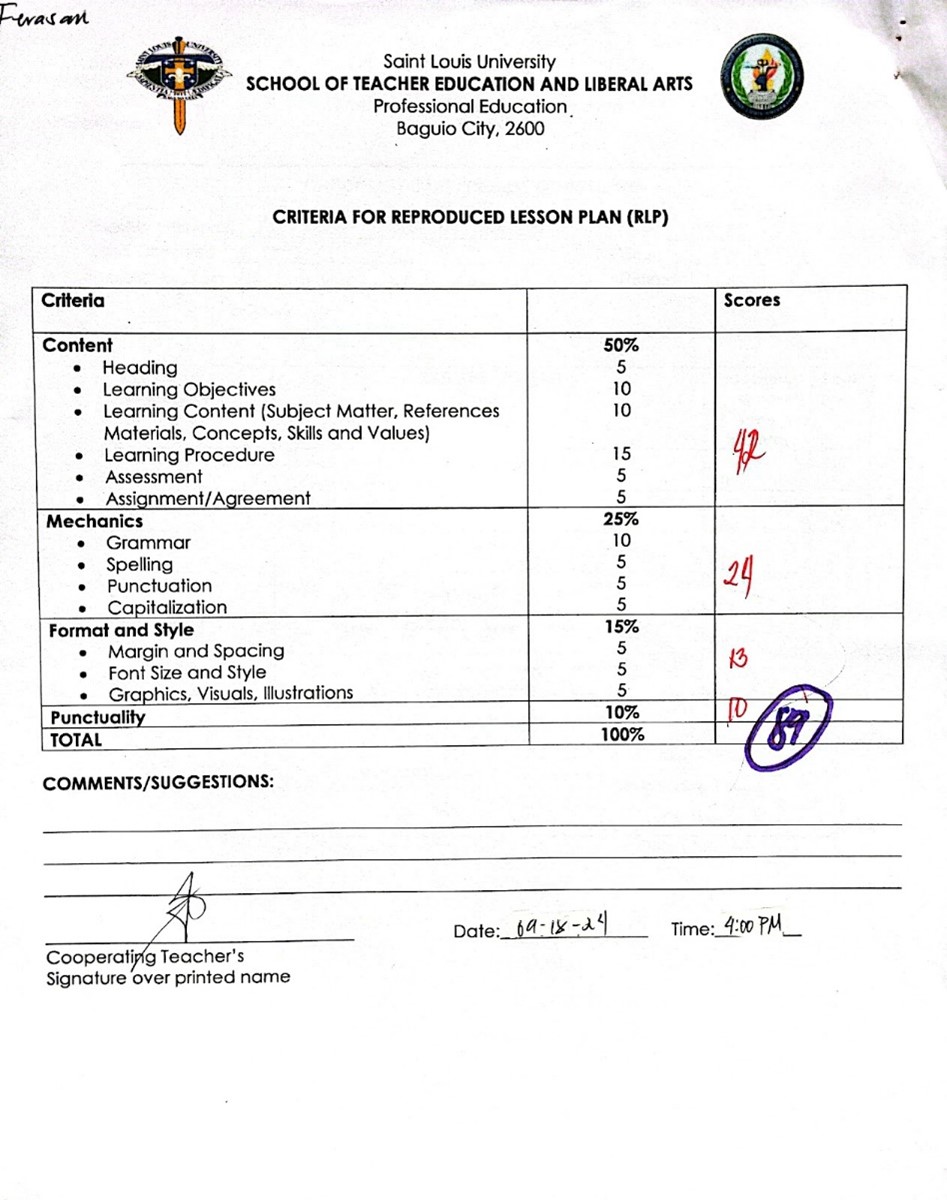 Ferasan
Saint Louis University
SCHOOL OF TEACHER EDUCATION AND LIBERAL ARTS
Professional Education
Baguio City, 2600
CRITERIA FOR REPRODUCED LESSON PLAN (RLP)
Criteria Scores
Content 50%
• Heading 5
• Learning Objectives 10
• Learning Content (Subject Matter, References 10
Materials, Concepts, Skills and Values)
42
• Learning Procedure 15
• Assessment 5
• Assignment/Agreement 5
Mechanics 25%
• Grammar 10
• Spelling 5
24
• Punctuation 5
• Capitalization 5
Format and Style 15%
• Margin and Spacing 5 13
• Font Size and Style 5
• Graphics, Visuals, Illustrations 5
Punctuality 10% 10
TOTAL 100% 89
COMMENTS/SUGGESTIONS:
Date: 09-18-24 Time: 4:00 PM
Cooperating Teacher's
Signature over printed name